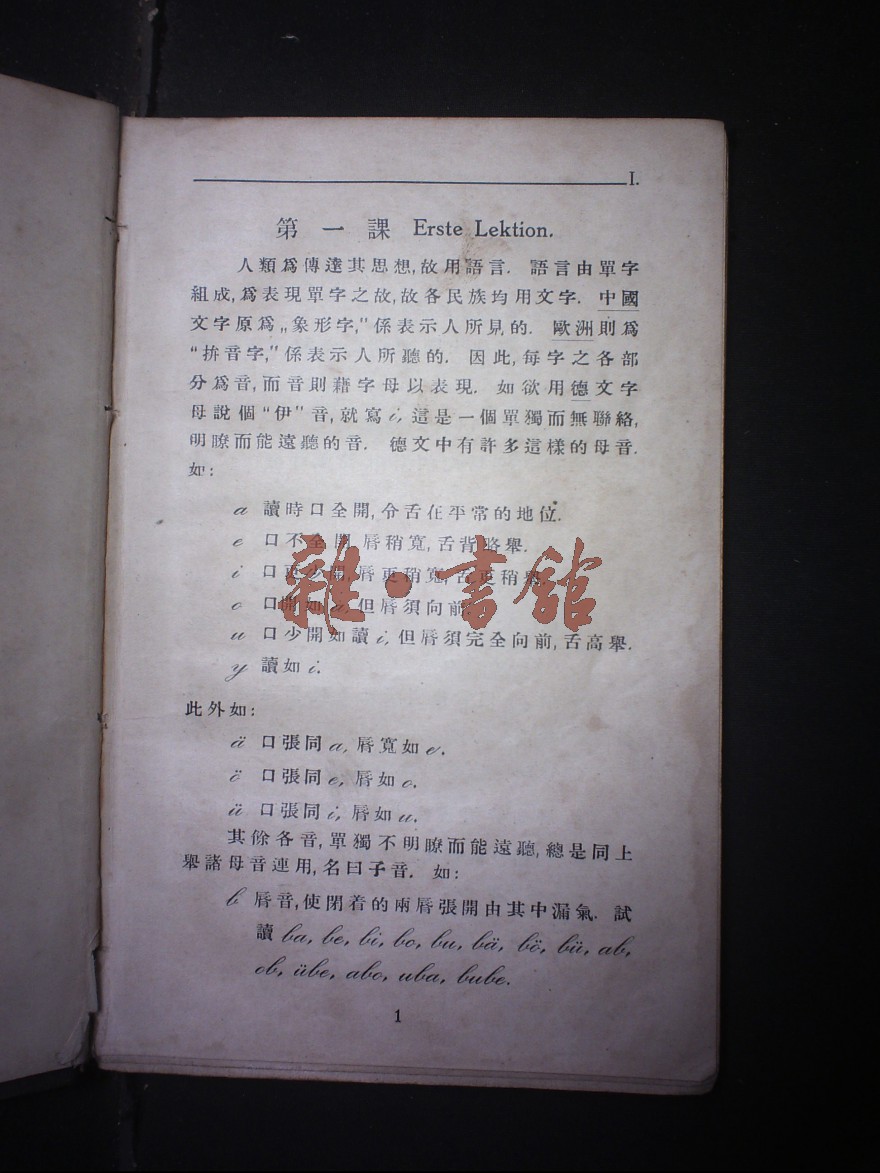 I.
第一課 Erste Lektion.
人類爲傳達其思想,故用語言. 語言由單字
組成,爲表現單字之故,故各民族均用文字. 中國
文字原爲„象形字,"係表示人所見的. 歐洲則爲
"拚音字,"係表示人所聽的. 因此,每字之各部
分爲音,而音則藉字母以表現. 如欲用德文字
母說個"伊"音,就寫i,這是一個單獨而無聯絡,
明瞭而能遠聽的音. 德文中有許多這樣的母音.
如:
a 讀時口全開,令舌在平常的地位.
e 口不全開,唇稍寬,舌背略舉.
i 口更少開,唇更稍寬,舌更稍舉.
o 口開如 但唇須向前.
u 口少開如讀i,但唇須完全向前,舌高舉.
y 讀如i.
此外如:
ä 口張同a,唇寬如e.
ö 口張同e,唇如o.
ü 口張同i,唇如u.
其餘各音,單獨不明瞭而能遠聽,總是同上
舉諸母音連用,名曰子音. 如:
b 唇音,使閉着的兩唇張開由其中漏氣. 試
讀 ba, be, bi, bo, bu, bä, bö, bü, ab,
ob, übe, abo, uba, bube.
1
雜·書館